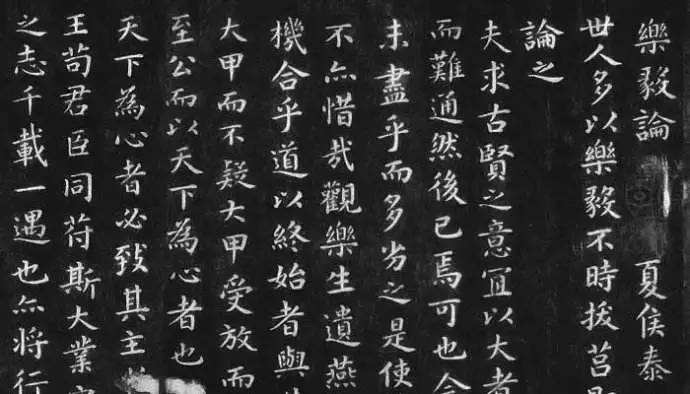 樂毅論 夏侯泰
世人多以樂毅不時拔莒
論之
夫求古賢之意宜以大者
而難通然後已焉可也今
未盡乎而多劣之是使
不亦惜哉觀樂生遺燕
機合乎道以終始者與
大甲而不疑大甲受放而
至公而以天下為心者也
天下為心者必致其主
王苟君臣同符斯大業
之志千載一遇也亦將行